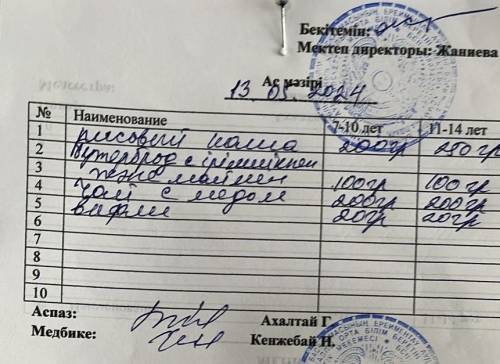 Бекітемін:
Мектеп директоры: Жаниева
Ас мәзірі
13. 05. 2024
№ Наименование 7-10 лет 11-14 лет
1 рисовый каша 200гр 250гр
2 Бутерброд с ірімшікпен
3 және маймен 100гр 100гр
4 чай с медом 200гр 200гр
5 вафли 20гр 20гр
6
7
8
9
10
Аспаз: Ахалтай Г
Медбике: Кенжебай Н.